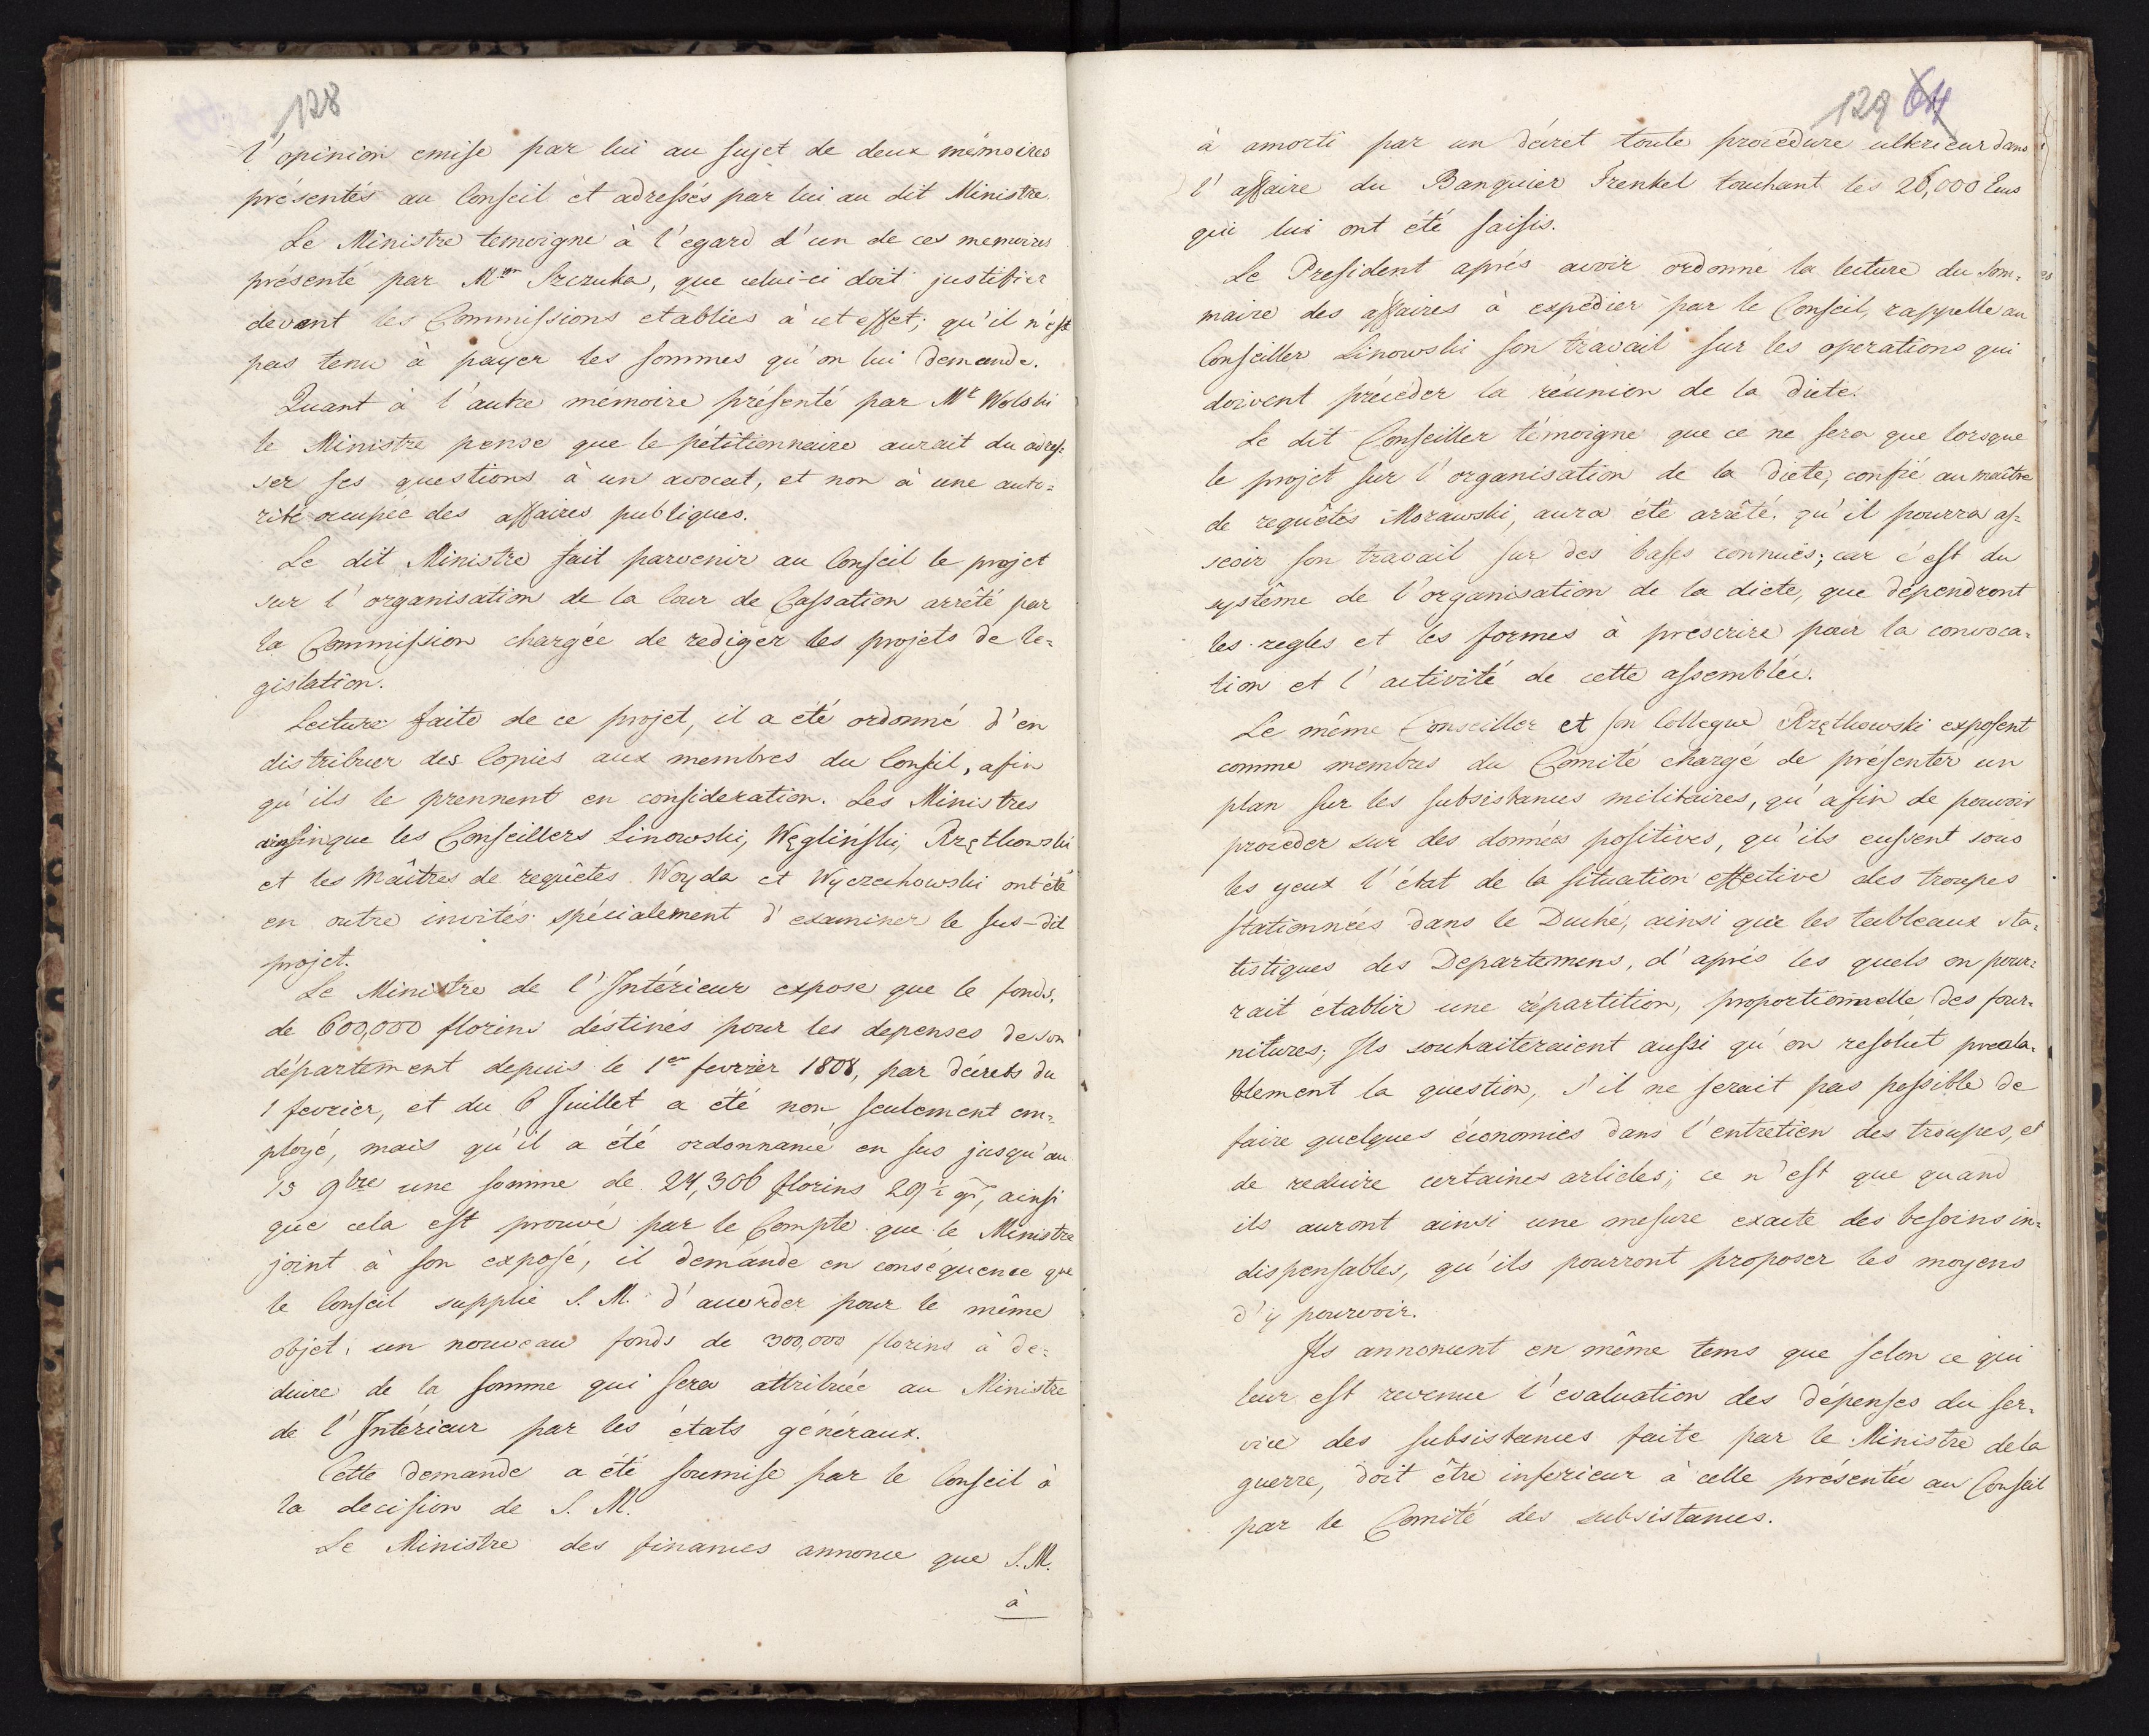 128
l'opinion emise par lui au sujet de deux mémoires
présentés au Conseil et adressés par lui au dit Ministre.
Le Ministre temoigne à l'egard d'un de ces memoires
présenté par Mr Szczuka, que celui-ci doit justifier
devant les Commissions etablies à cet effet; qu'il n'est
pas tenu à payer les sommes qu'on lui demande.
Quant à l'autre mémoire présenté par Mr Wolski
le Ministre pense que le pétitionnaire aurait du adres=
ser ses questions à un avocat, et non à une auto=
rité occupée des affaires publiques.
Le dit Ministre fait parvenir au Conseil le projet
sur l'organisation de la Cour de Cassation arrêté par
la Commission chargée de rediger les projets de le=
gislation.
Lecture faite de ce projet, il a été ordonné d'en
distribuer des Copies aux membres du Conseil, afin
qu'ils le prennent en consideration. Les Ministres
ainsi que les Conseillers Linowski, Węgliński, Rzętkowski
et les Maîtres de requêtes Woyda et Wyczechowski ont été
en outre invités spécialement d'examiner le sus-dit
projet.
Le Ministre de l'Intérieur expose que le fonds,
de 600,000 florins déstinés pour les depenses de son
département depuis le 1er fevrier 1808, par décrets du
1 fevrier, et du 6 Juillet a été non seulement em=
ployé, mais qu'il a été ordonnancé en sus jusqu'au
13 9bre une somme de 24,306 florins 29 ½ gr, ainsi
que cela est prouvé par le Compte que le Ministre
joint à son exposé, il demande en conséquence que
le Conseil supplie S. M. d'accorder pour le même
objet, un nouveau fonds de 300,000 florins à de=
duire de la somme qui sera attribuée au Ministre
de l'Intérieur par les états généraux.
Cette demande a été soumise par le Conseil à
la decision de S. M.
Le Ministre des finances annonce que S. M.
à
129 64
à amorti par un décret toute procédure ulterieur dans
l'affaire du Banquier Frenkel touchant les 26,000 Ecus
qui lui ont été saisis.
Le President après avoir ordonné la lecture du som=
maire des affaires à expédier par le Conseil, rappelle au
Conseiller Linowski son travail sur les operations qui
doivent précéder la réunion de la diete.
Le dit Conseiller témoigne que ce ne sera que lorsque
le projet sur l'organisation de la diete, confié au maître
de requêtes Morawski, aura été arrêté. qu'il pourra as=
seoir son travail sur des bases connues; car c'est du
systême de l'organisation de la diete, que dépendront
les regles et les formes à prescrire pour la convoca=
tion et l'activité de cette assemblée.
Le même Conseiller et son Collegue Rzętkowski exposent
comme membres du Comité chargé de présenter un
plan sur les subsistances militaires, qu'afin de pouvoir
proceder sur des données positives, qu'ils eussent sous
les yeux l'état de la situation effective des troupes
stationnées dans le Duché, ainsi que les tableaux sta=
tistiques des Departemens, d'après les quels on pour=
rait établir une répartition, proportionnelle des four=
nitures; Ils souhaiteraient aussi qu'on resolut preala=
blement la question, s'il ne serait pas possible de
faire quelques économies dans l'entretien des troupes, et
de reduire certaines articles; ce n'est que quand
ils auront ainsi une mesure exacte des besoins in=
dispensables, qu'ils pourront proposer les moyens
d'y pourvoir.
Ils annoncent en même tems que selon ce qui
leur est revenue l'evaluation des dépenses du ser=
vice des subsistances faite par le Ministre de la
guerre, doit être inferieur à celle présentée au Conseil
par le Comité des subsistances.